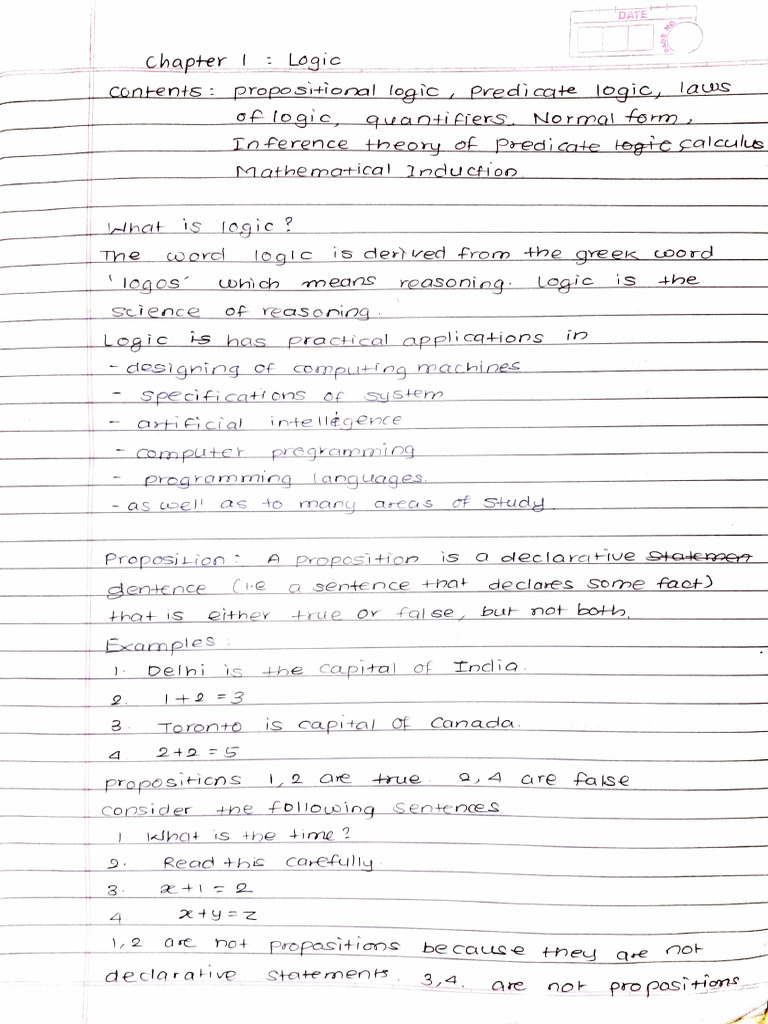 DATE
PAGE NO.
Chapter 1 : Logic
Contents: propositional logic, predicate logic, laws
of logic, quantifiers. Normal form,
Inference theory of predicate logic calculus
Mathematical Induction
What is logic?
The word logic is derived from the greek word
'logos' which means reasoning. Logic is the
science of reasoning.
Logic is has practical applications in
- designing of computing machines
- specifications of system
- artificial intelligence
- computer programming
- programming languages.
- as well as to many areas of study.
Proposition: A proposition is a declarative statemen
sentence (i.e a sentence that declares some fact)
that is either true or false, but not both.
Examples.
1. Delhi is the capital of India.
2. 1+2=3
3. Toronto is capital of Canada.
4 2+2=5
propositions 1,2 are true. 2,4 are false
consider the following sentences
1 What is the time?
2. Read this carefully.
3. x+1=2
4 x+y=z
1,2 are not propositions because they are not
declarative statements. 3,4. are not propositions